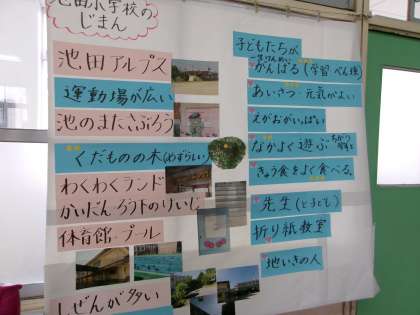 池田小学校の
じまん
池田アルプス
運動場が広い
池のまたさぶろう
くだものの木(めずらしい)
わくわくランド
かいだん・ろう下のけいじ
体育館・プール
しぜんが多い
子どもたちが
いっしょうけんめい
がんばる(学習 べん強)
あいさつ・元気がよい
えがおがいっぱい
なかよく遊ぶ
きゅう食をよく食べる。
先生(とっても)
折り紙教室
地いきの人